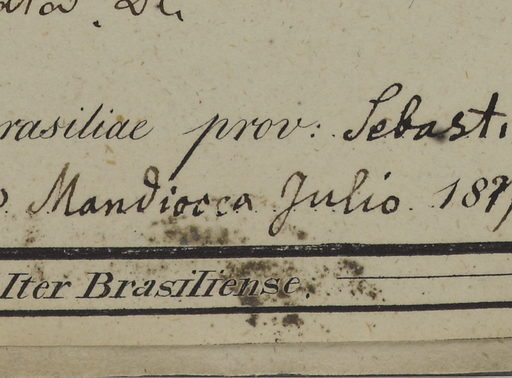 De.
rasiliae prov: Sebasti
Mandiocca Julio 18
Iter Brasiliense.